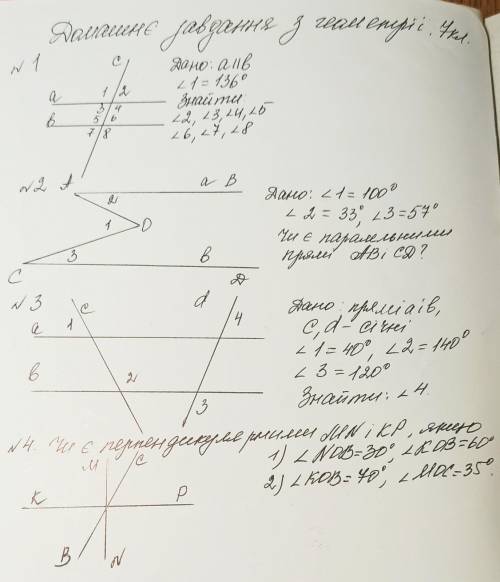 Домашнє завдання з геометрії. 7кл.
№1
C
1 2
a
3 4
b
5 6
7 8
Дано: a∥b
∠1=136°
Знайти
∠2, ∠3, ∠4, ∠5
∠6, ∠7, ∠8
№2
A
a B
2
1
O
3
b
C
D
Дано: ∠1=100°
∠2=33°, ∠3=57°
Чи є паралельними
прямі AB і CD?
№3
c
d
1
4
a
b
2
3
Дано: прямі a і b,
c, d – січні
∠1=40°, ∠2=140°
∠3=120°
Знайти: ∠4.
№4. Чи є перпендикулярними MN і KP, якщо
1) ∠NOB=30°, ∠KOB=60°
2) ∠KOB=70°, ∠MOC=35°.
M
C
K
P
B
N